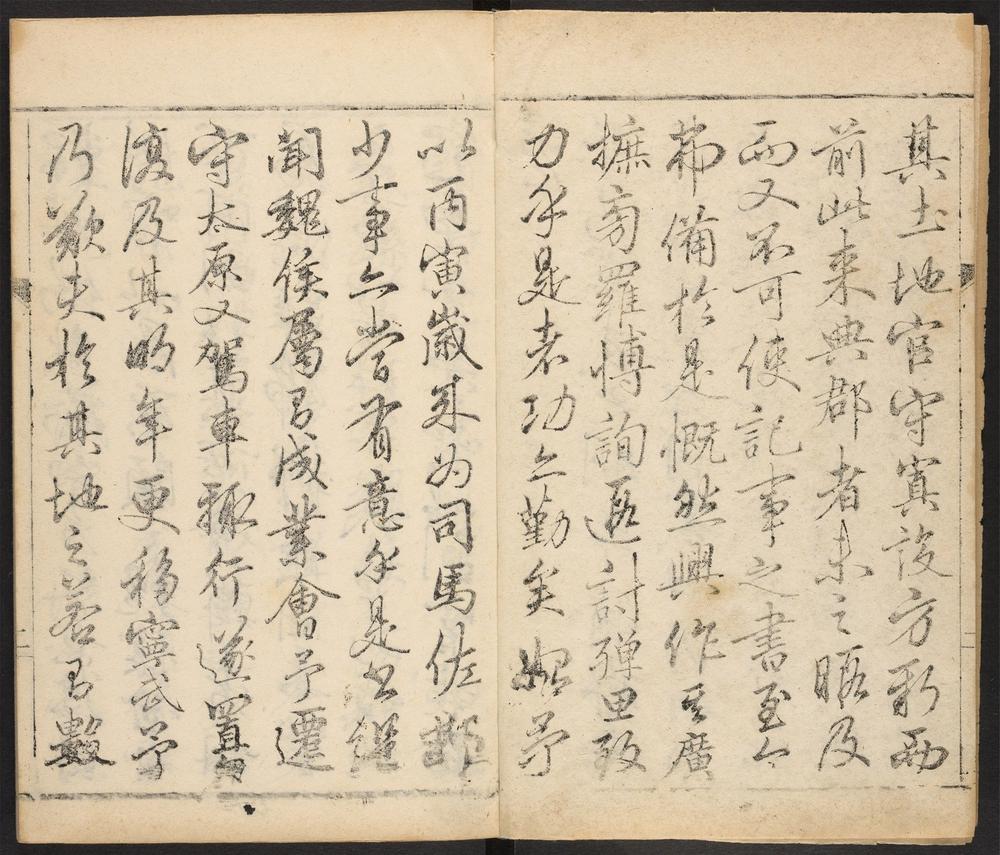 其土地官守寘設方新而
前此来典郡者未之暇及
而又不可使記事之書至今
弗備於是慨然興作乃廣
摭旁羅博詢遐討殫思致
力乎是者功亦勤矣始予
以丙寅歲来為司馬佐鄭
少事亦嘗有意乎是書繼
聞魏侯屬有成業會予遷
守太原又駕車輙行遂置
復及其明年更移寧武予
乃歎夫於其地之若有數